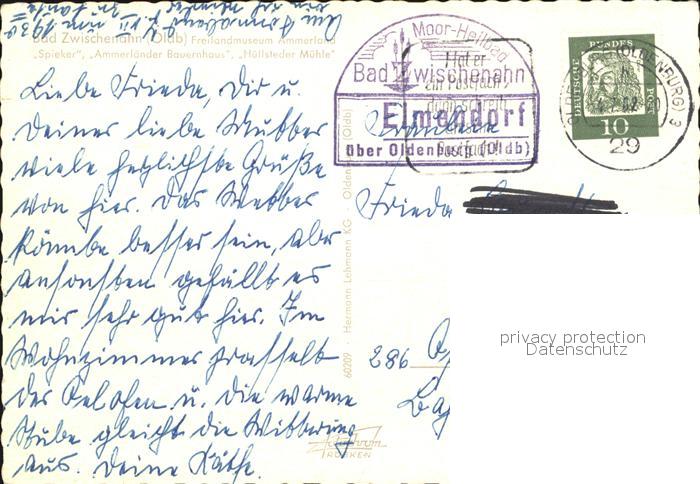 Am
Bad Zwischenahn (Oldb) Freilandmuseum Ammerland
"Spieker", "Ammerländer Bauernhaus", "Hüllsteder Mühle"
Liebe Frieda, dir u.
deiner liebe Mutter
viele herzlichste Grüße
von hier. Das Wetter
könnte besser sein, aber
ansonsten gefällt es
mir sehr gut hier. Im
Wohnzimmer prasselt
der Ölofen u. die warme
Stube gleicht die Witterung
aus. Deine Käthe.
Moor-Heilbad
Bad Zwischenahn
Elmendorf
über Oldenburg (Oldb)
Hat er
ein Postfach?
dann schreib
Postfach
DEUTSCHE BUNDESPOST
10
(OLDENBURG)
29
Fräulein
Frieda
286
60209 · Hermann Lehmann KG · Oldenburg (Oldb)
privacy protection
Datenschutz